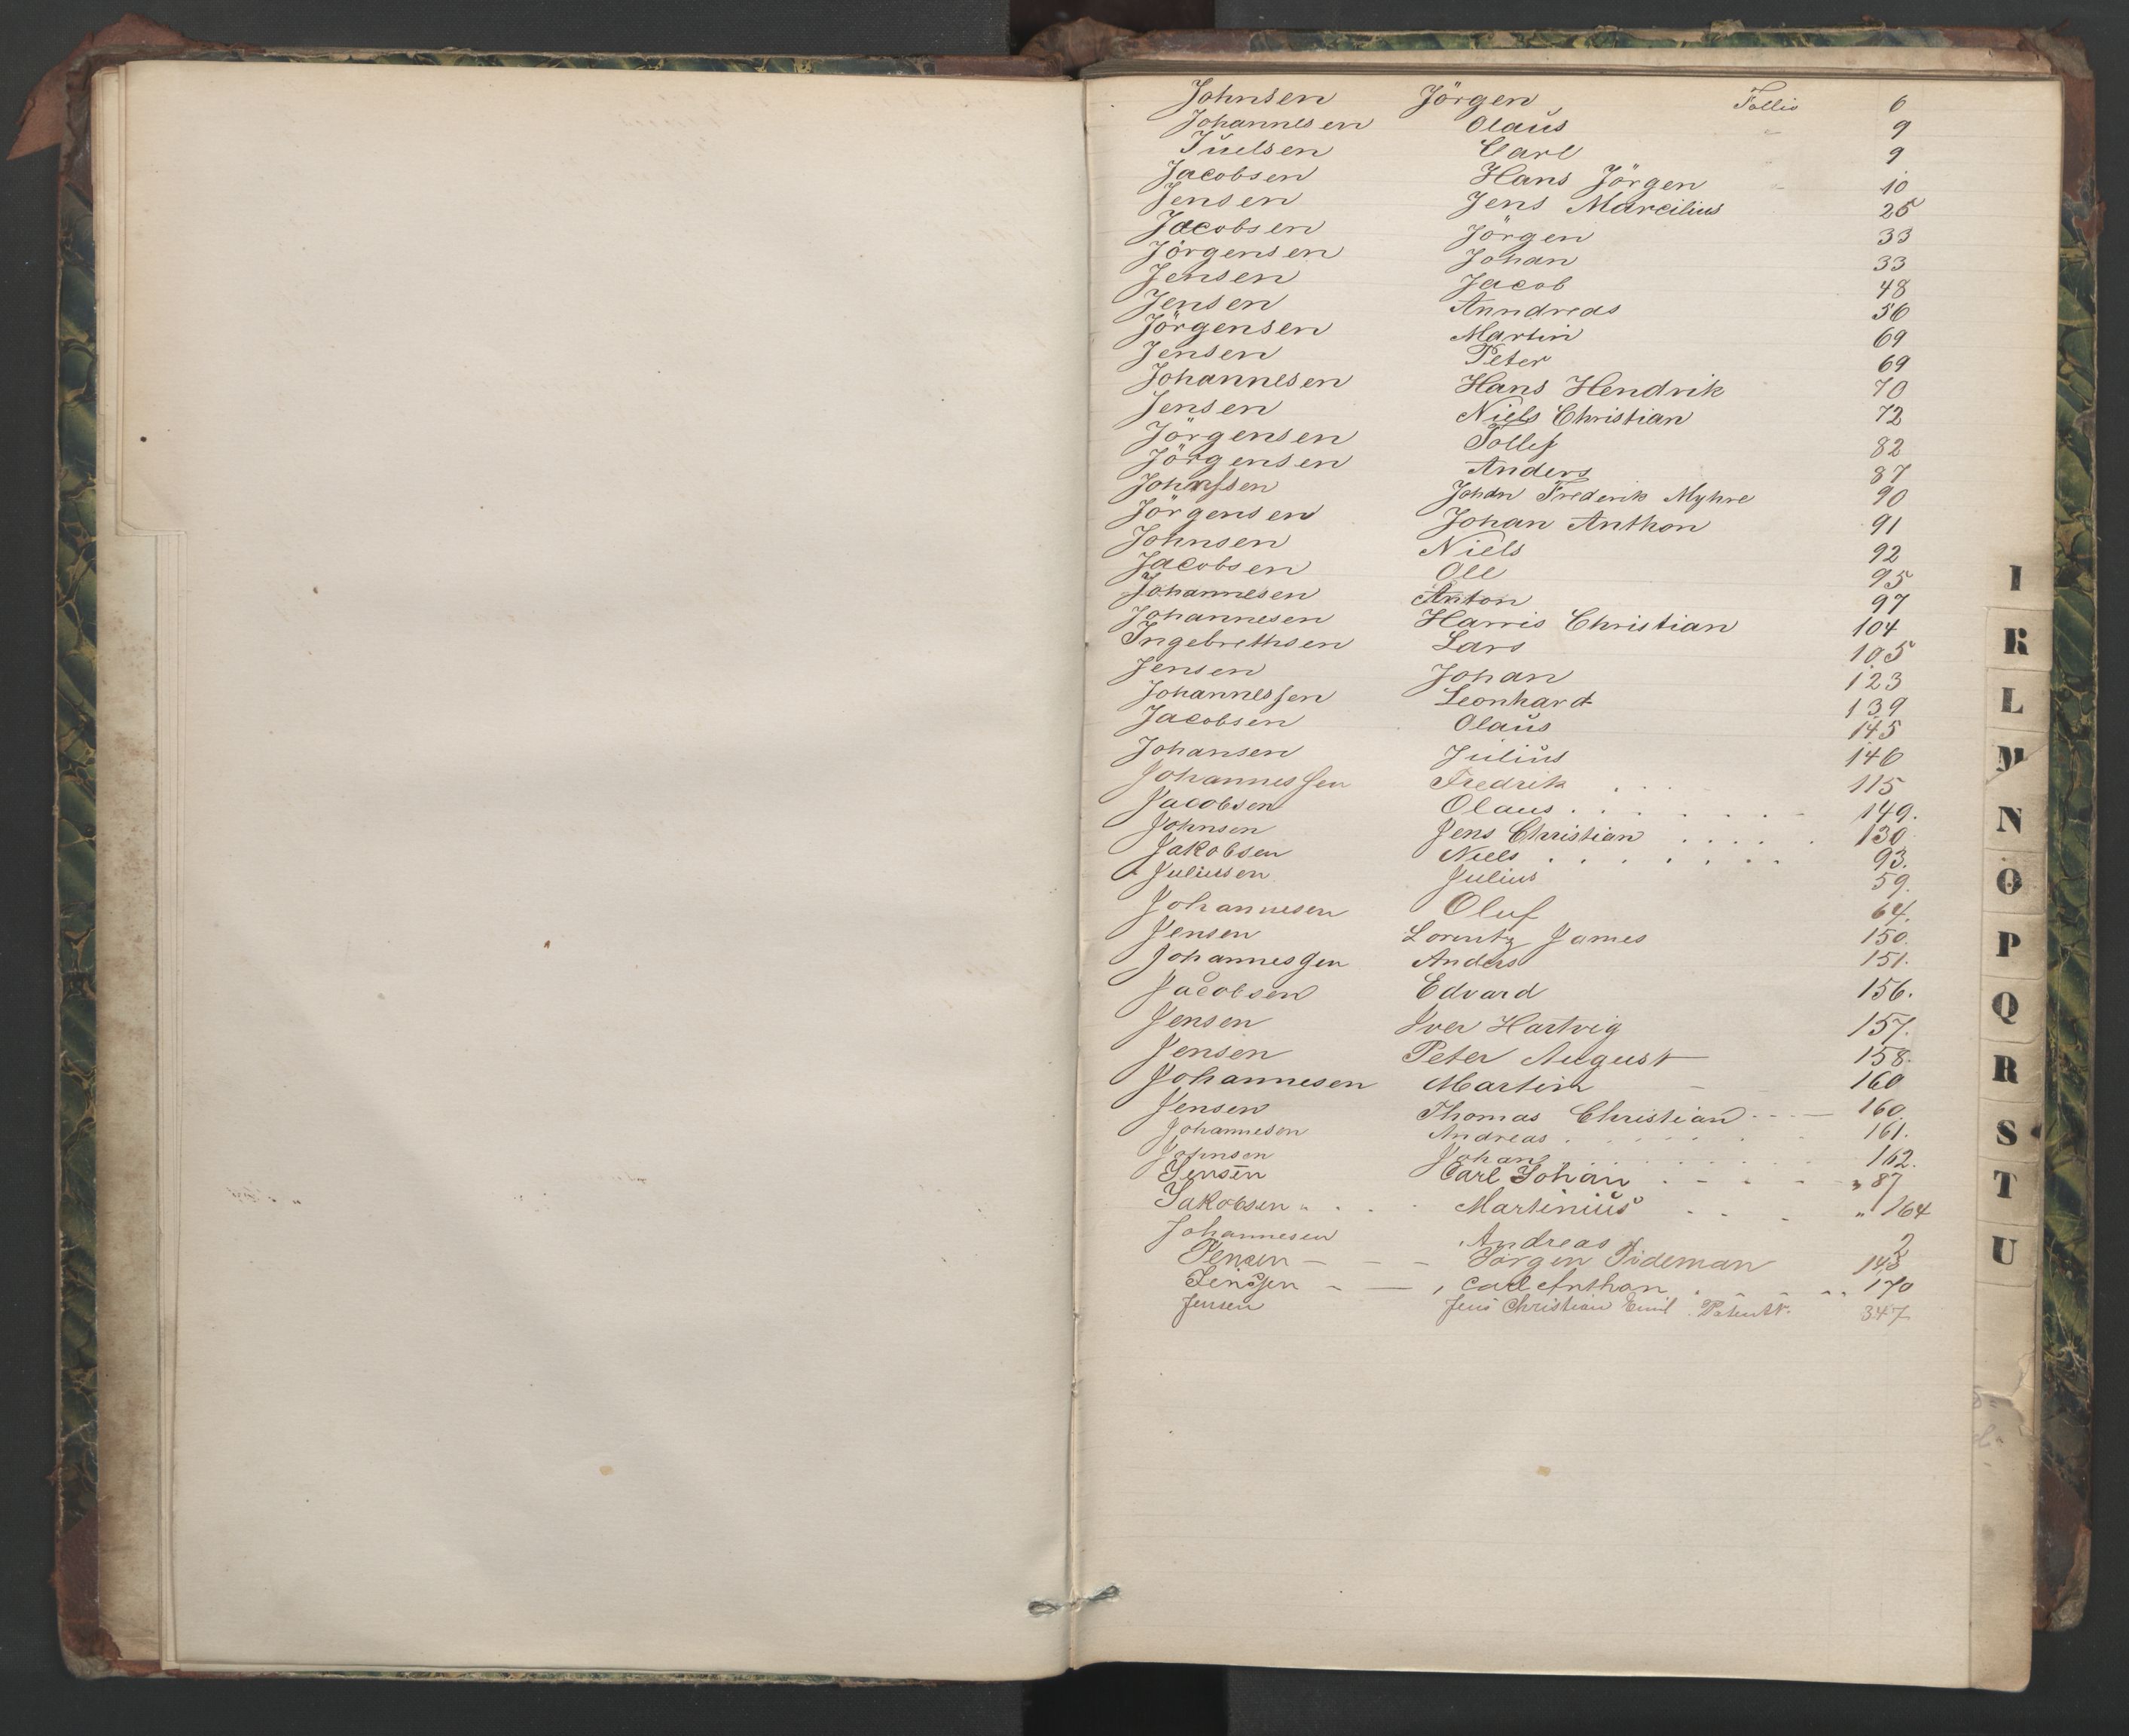 Johnsen Jörgen Follio 6
Johannesen Olaŭs " 9
Juelsen Carl 9
Jacobsen Hans Jörgen " 10
Jensen Jens Marcilius 25
Jacobsen Jörgen 33
Jörgensen Johan 33
Jensen Jacob 48
Jensen Anndreas 56
Jörgensen Martin 69
Jensen Peter 69
Johannesen Hans Hendrik 70
Jensen Niels Christian 72
Jörgensen Tollef 82
Jörgensen Anders 87
Johnssen Johan Frederik Myhre 90
Jörgensen Johan Anthon 91
Johnsen Niels 92
Jacobsen Ole 95
Johannesen Anton 97
Johannesen Harris Christian 104
Ingebrethsen Lars 105
Jensen Johan 123
Johannessen Leonhard 139
Jacobsen Olaŭs 145
Johansen Juliŭs 146
Johannessen Fredrik . . . 115
Jacobsen Olaus . . . . . . 149.
Johnsen Jens Christian . . . . . 130
Jakobsen Niels . . . . . . . 93.
Juliussen Julius 59.
Johannesen Oluf 64.
Jensen Lorentz James 150.
Johannessen Anders 151.
Jacobsen Edvard 156.
Jensen Iver Hartvig 157.
Jensen Peter August 158.
Johannesen Martin - 160
Jensen Thomas Christian - - - 160.
Johannesen Andreas . . . . . 161.
Johnsen Johan . . . . . . 162.
Jensen Carl Johan - - - - " 87
Jakobsen " . . . Martiniŭs - - - " 164
Johannesen Andreas 2
Jensen - - - Jörgen Tideman 148
Jenssen - - , Carl Anthon . - - - " 170
Jensen Jens Christian Emil Patentr. 347
I
K
L
M
N
O
P
Q
R
S
T
U